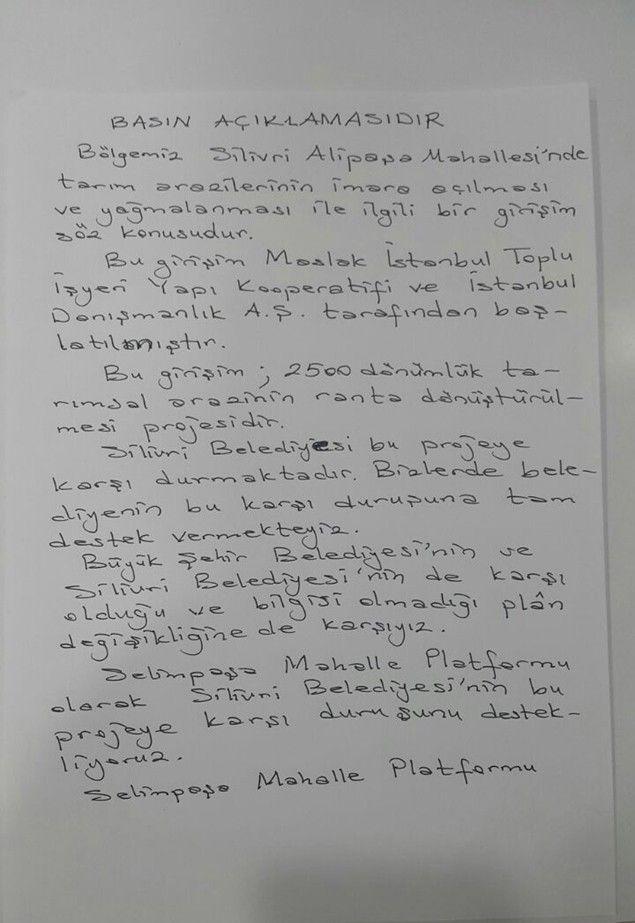 BASIN AÇIKLAMASIDIR
Bölgemiz Silivri Alipaşa Mahallesi'nde
tarım arazilerinin imara açılması
ve yağmalanması ile ilgili bir girişim
söz konusudur.
Bu girişim Maslak İstanbul Toplu
İşyeri Yapı Kooperatifi ve İstanbul
Danışmanlık A.Ş. tarafından baş-
latılmıştır.
Bu girişim ; 2500 dönümlük ta-
rımsal arazinin ranta dönüştürül-
mesi projesidir.
Silivri Belediyesi bu projeye
karşı durmaktadır. Bizlerde bele-
diyenin bu karşı duruşuna tam
destek vermekteyiz.
Büyük Şehir Belediyesi'nin ve
Silivri Belediyesi'nin de karşı
olduğu ve bilgisi olmadığı plân
değişikliğine de karşıyız.
Selimpaşa Mahalle Platformu
olarak Silivri Belediyesi'nin bu
projeye karşı duruşunu destek-
liyoruz.
Selimpaşa Mahalle Platformu